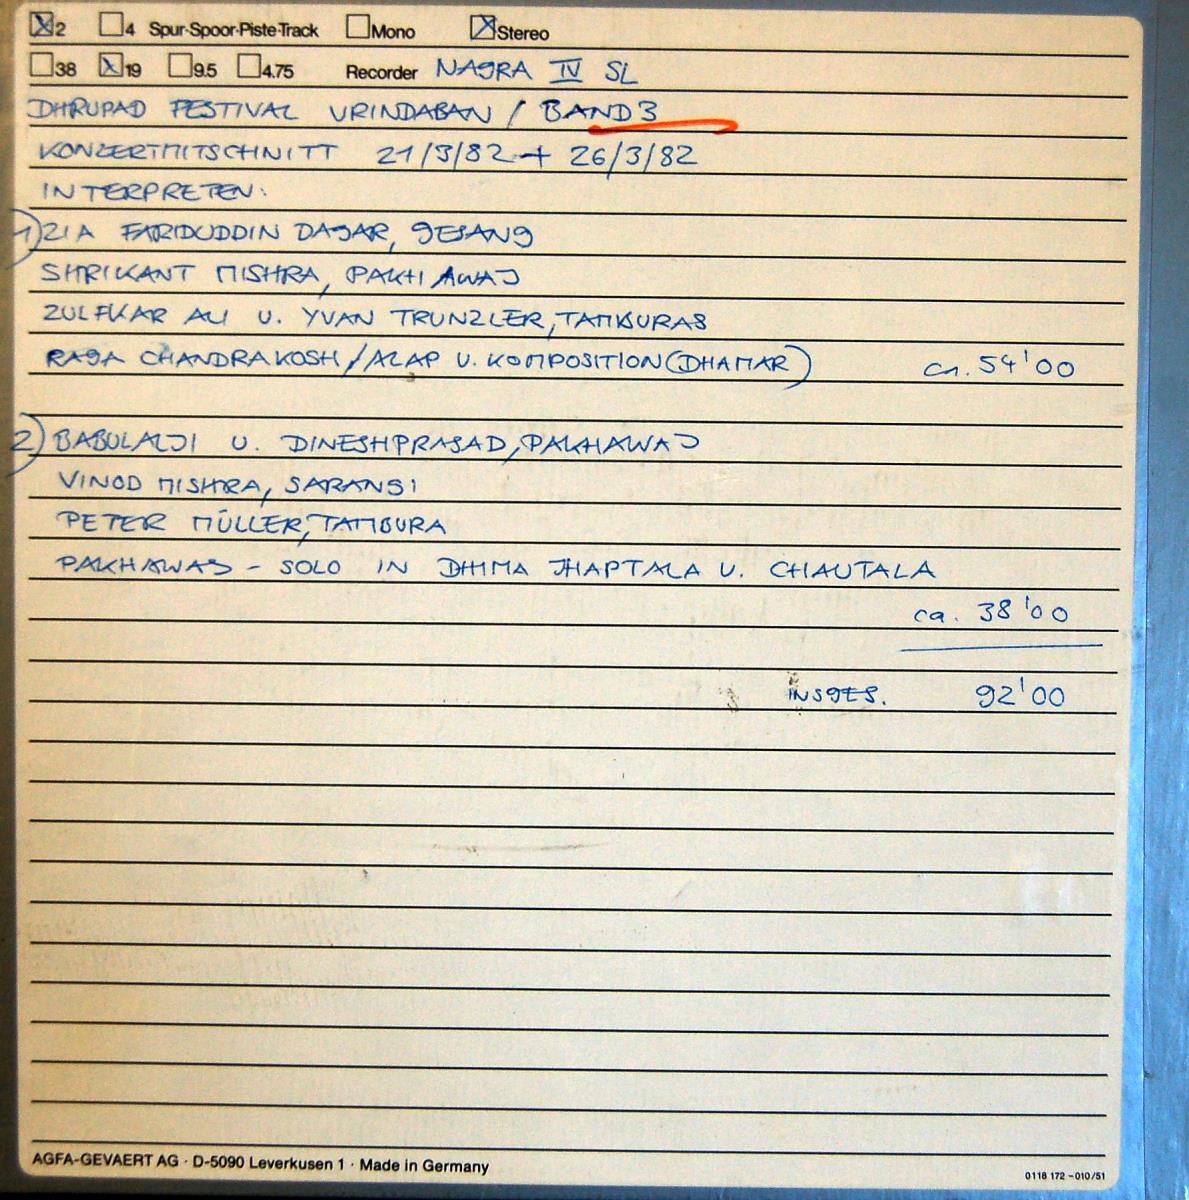 ☒2 ☐4 Spur-Spoor-Piste-Track ☐Mono ☒Stereo
☐38 ☒19 ☐9.5 ☐4.75 Recorder NAGRA IV SL
DHRUPAD FESTIVAL VRINDABAN / BAND 3
KONZERTMITSCHNITT 21/3/82 + 26/3/82
INTERPRETEN:
1) ZIA FARIDUDDIN DAGAR, GESANG
SHRIKANT MISHRA, PAKHAWAJ
ZULFKAR ALI U. YVAN TRUNZLER, TAMBURAS
RAGA CHANDRAKOSH / ALAP U. KOMPOSITION (DHAMAR) ca. 54'00
2) BABULALJI U. DINESHPRASAD, PAKHAWAJ
VINOD MISHRA, SARANGI
PETER MÜLLER, TAMBURA
PAKHAWAJ - SOLO IN DHIMA JHAPTALA U. CHAUTALA
ca. 38'00
INSGES. 92'00
AGFA-GEVAERT AG · D-5090 Leverkusen 1 · Made in Germany
0118 172 - 010/51